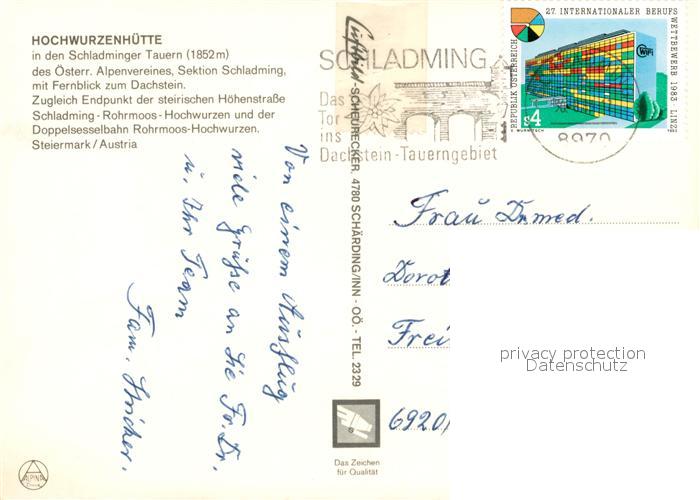 HOCHWURZENHÜTTE
in den Schladminger Tauern (1852 m)
des Österr. Alpenvereines, Sektion Schladming,
mit Fernblick zum Dachstein.
Zugleich Endpunkt der steirischen Höhenstraße
Schladming - Rohrmoos - Hochwurzen und der
Doppelsesselbahn Rohrmoos-Hochwurzen.
Steiermark / Austria
Von einem Ausflug
viele Grüße an Sie Fr. Dr.
u. Ihr Team
Fam.
ALPINA
Luftbild-SCHEURECKER, 4780 SCHÄRDING/INN - OÖ. - TEL. 23 29
Das Zeichen
für Qualität
SCHLADMING
Das
Tor
ins
Dachstein-Tauerngebiet
8970
27. INTERNATIONALER BERUFS
WETTBEWERB 1983 LINZ
REPUBLIK ÖSTERREICH
S4
WIFI
Frau Dr. med.
Dorot
Frei
6920
privacy protection
Datenschutz